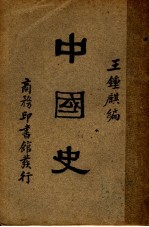 王鍾麒編
中國史
商務印書館發行